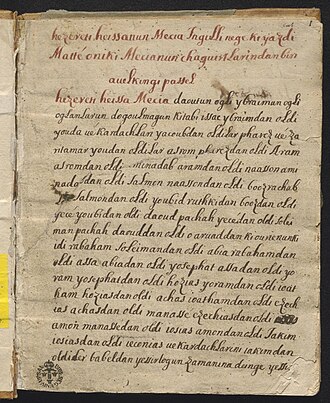 hezereti heissanun Mecia Ingilli nege ki yazdi
Matté oniki Mecianun chaguirtlarindan birı
auelkingi passel
hezereti heissa Mecia daousun ogli ybraimun ogli
oglanlarun dogoulmagun Kitabi issac ybraimdan oldi
youda ue Kardachlari yacoubdan oldilar pharez ue za
ra tamar youdan oldilar asrom pherezdan oldi Aram
asromdan oldi menadab aramdan oldi naasson ami
nadabdan oldi salmon naassondan oldi booz rachab
salmondan oldi youbid ruthkidan boozdan oldi
yece youbidan oldi daoud pachah yecedan oldi soli
man pachah daouddan oldi
idi rabaham soleimandan oldi abia rabahamdan
oldi assa abiadan oldi yosephat assadan oldi yo
ram yosephatdan oldi hozias yoramdan oldi ioat
ham hoziasdan oldi achas ioathamdan oldi ezech
ias achasdan oldi manasse ezechiasdan oldi
amon manassedan oldi iosias amondan oldi Iakim
iosiasdan oldi ieconias ue Kardachlarii iakemdan
oldilar babeldan yessirlogun zamanina dunge yessi